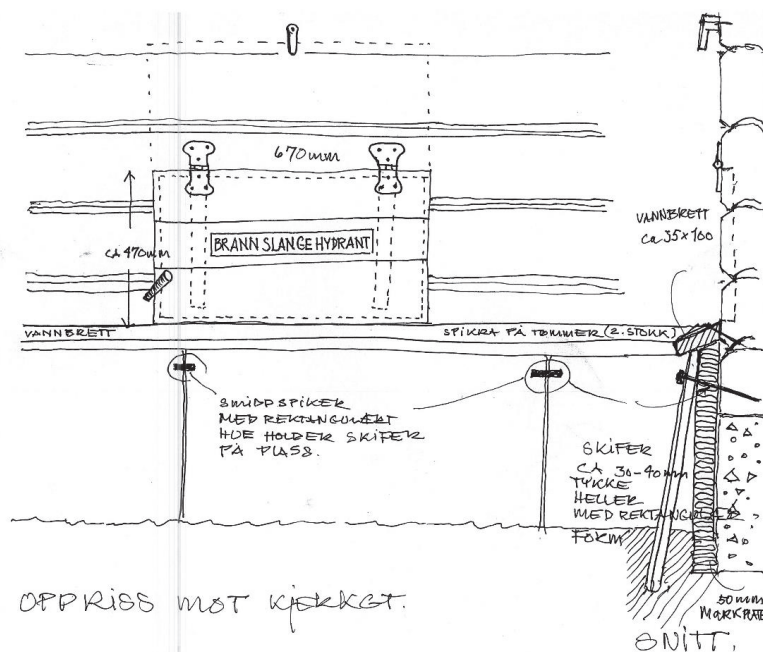 670mm
VANNBRETT
ca 35x100
BRANN SLANGE HYDRANT
CA 470mm
VANNBRETT
SPIKRA PÅ TØMMER (2. STOKK)
SMIDD SPIKER
MED REKTANGULÆRT
HUE HOLDER SKIFER
PÅ PLASS.
SKIFER
CA 30-40mm
TYKKE
HELLER
MED REKTANGULÆR
FORM
50mm
MARKPLATE
OPPRISS MOT KJØKKET.
SNITT.